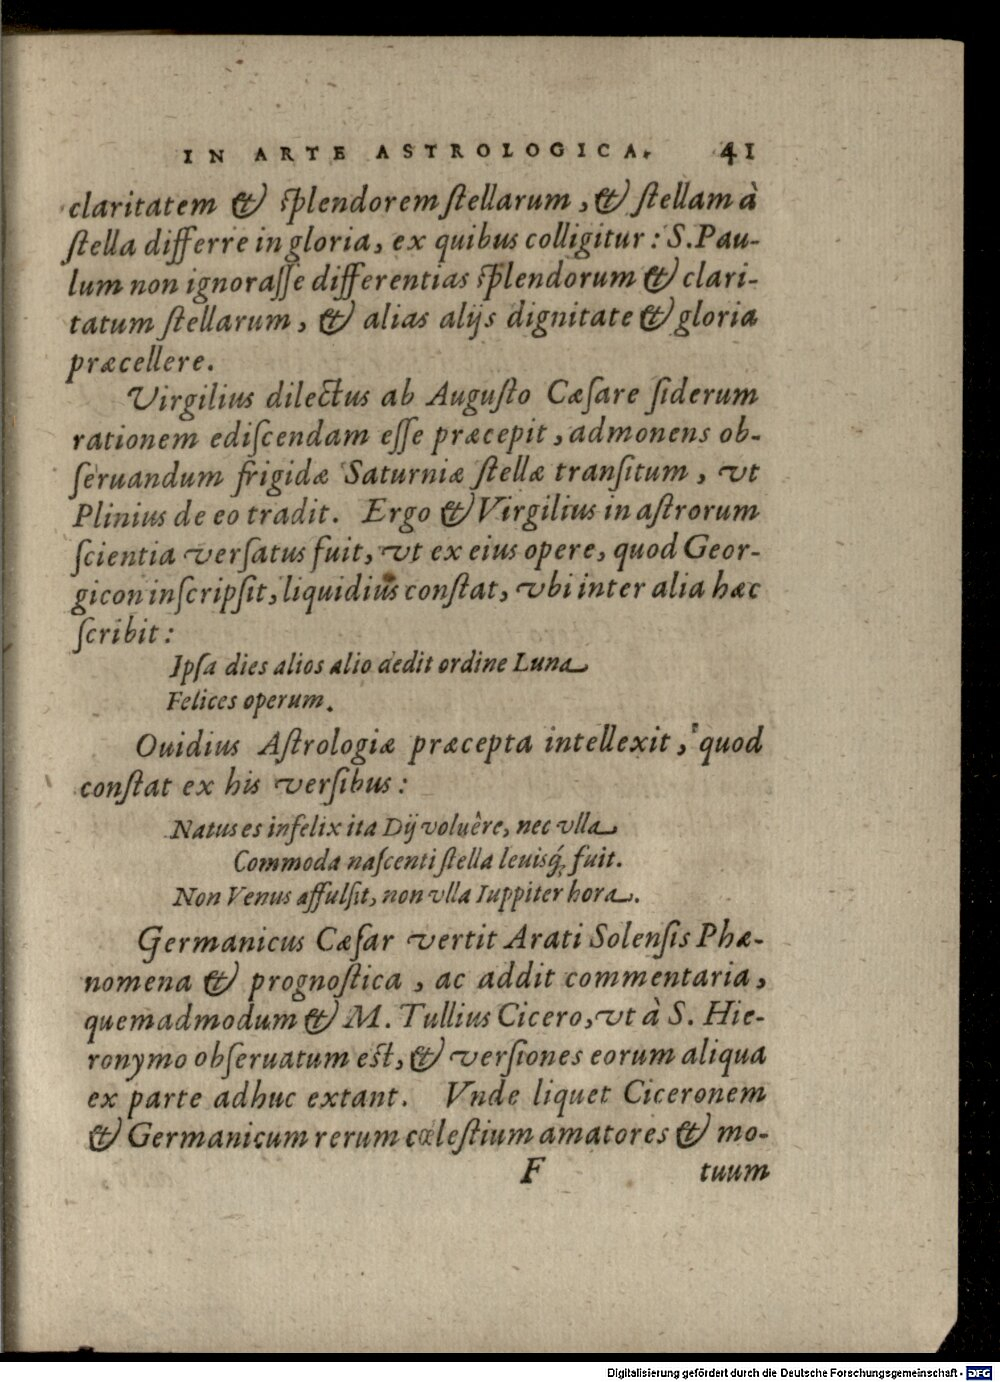 IN ARTE ASTROLOGICA. 41
claritatem & ſplendorem ſtellarum, & ſtellam à
ſtella differre in gloria, ex quibus colligitur: S. Pau-
lum non ignoraſſe differentias ſplendorum & clari-
tatum ſtellarum, & alias alijs dignitate & gloria
præcellere.
Virgilius dilectus ab Auguſto Cæſare ſiderum
rationem ediſcendam eſſe præcepit, admonens ob-
ſeruandum frigidæ Saturniæ ſtellæ tranſitum, vt
Plinius de eo tradit. Ergo & Virgilius in aſtrorum
ſcientia verſatus fuit, vt ex eius opere, quod Geor-
gicon inſcripſit, liquidius conſtat, vbi inter alia hæc
ſcribit:
Ipſa dies alios alio dedit ordine Luna
Felices operum.
Ouidius Aſtrologiæ præcepta intellexit, quod
conſtat ex his verſibus:
Natus es infelix ita Dij voluêre, nec vlla
Commoda naſcenti ſtella leuisq́; fuit.
Non Venus affulſit, non vlla Iuppiter hora.
Germanicus Cæſar vertit Arati Solenſis Phæ-
nomena & prognoſtica, ac addit commentaria,
quemadmodum & M. Tullius Cicero, vt à S. Hie-
ronymo obſeruatum eſt, & verſiones eorum aliqua
ex parte adhuc extant. Vnde liquet Ciceronem
& Germanicum rerum cœleſtium amatores & mo-
F tuum
Digitalisierung gefördert durch die Deutsche Forschungsgemeinschaft - DFG